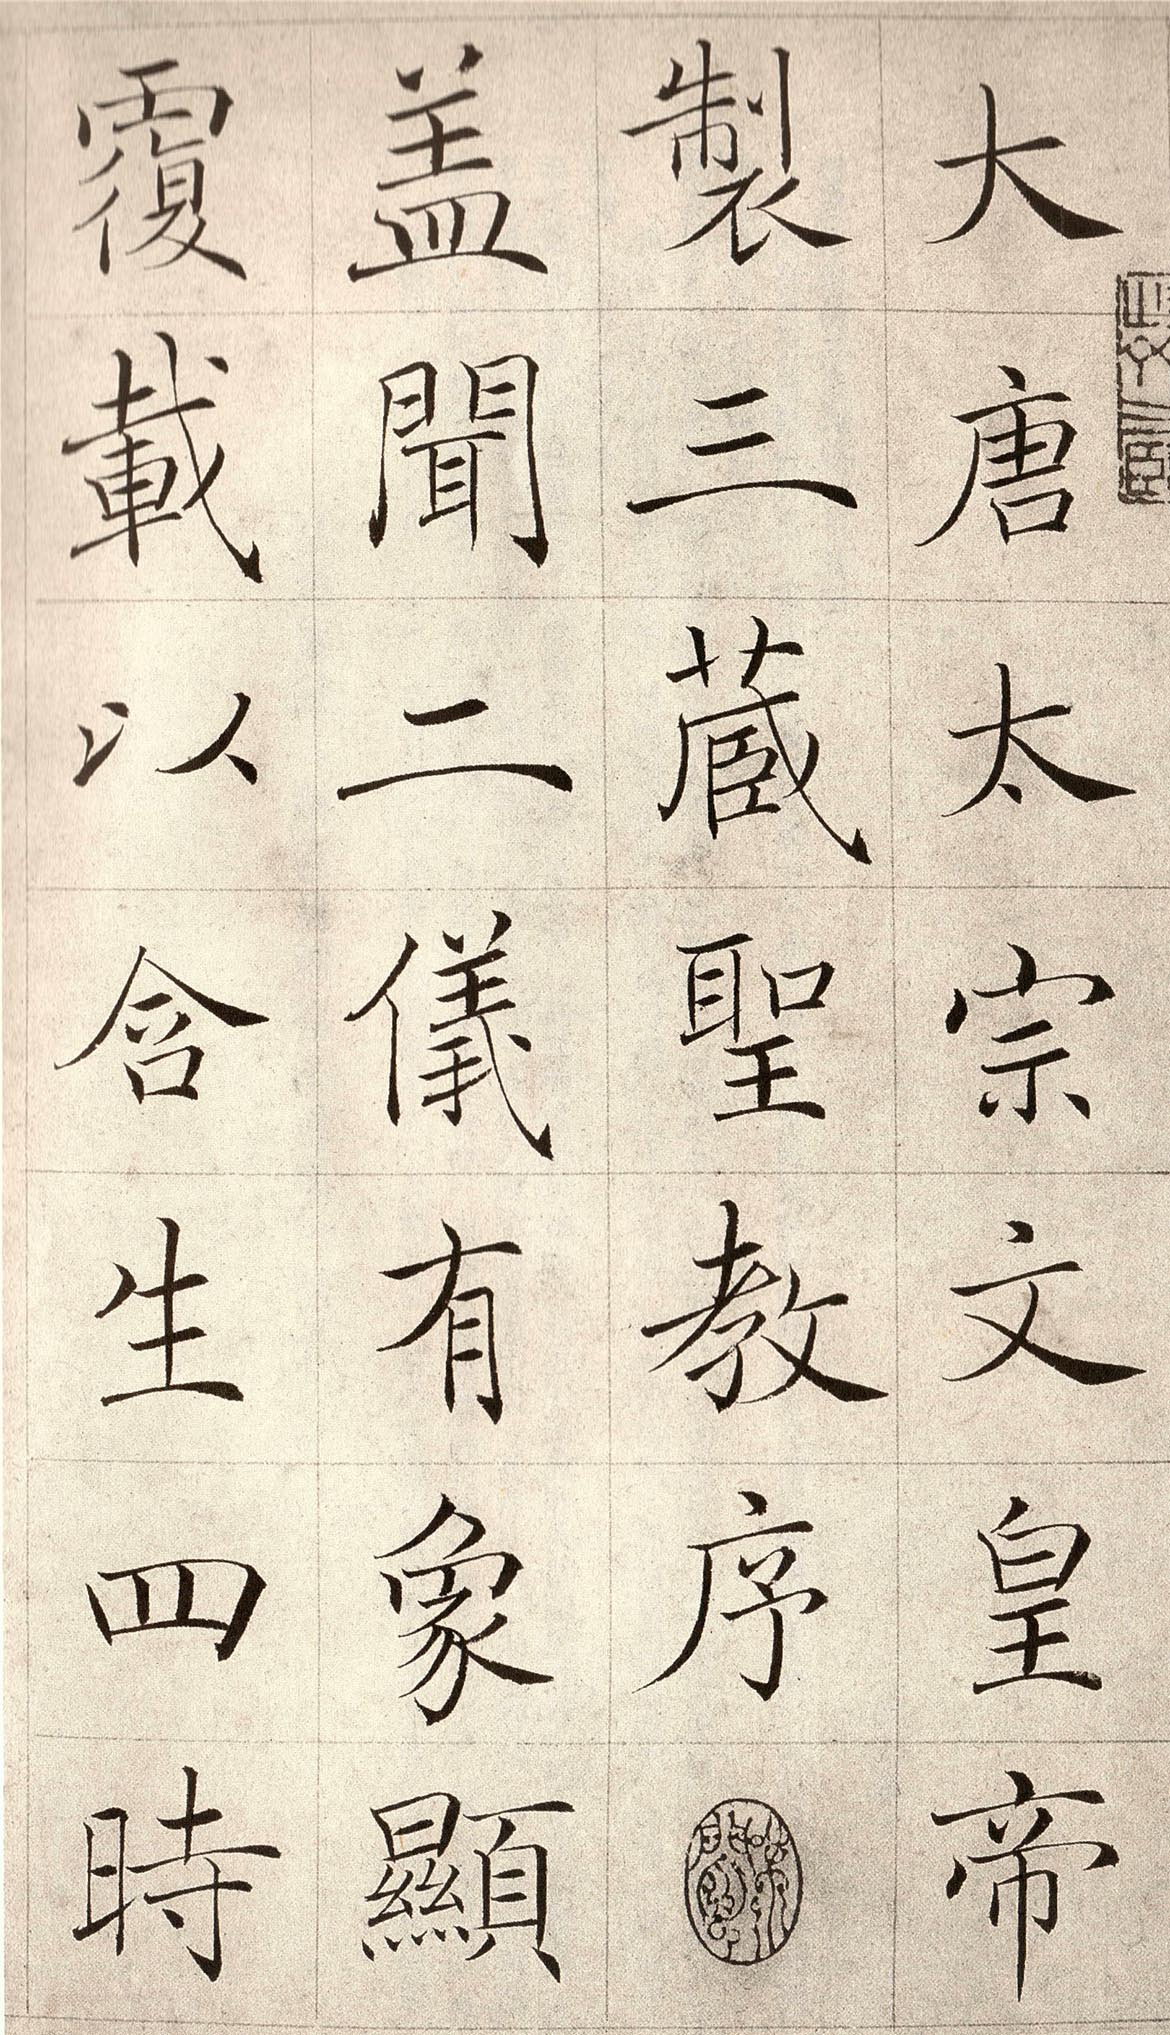 大唐太宗文皇帝
製三蔵聖教序
盖聞二儀有象顯
覆載以含生四時